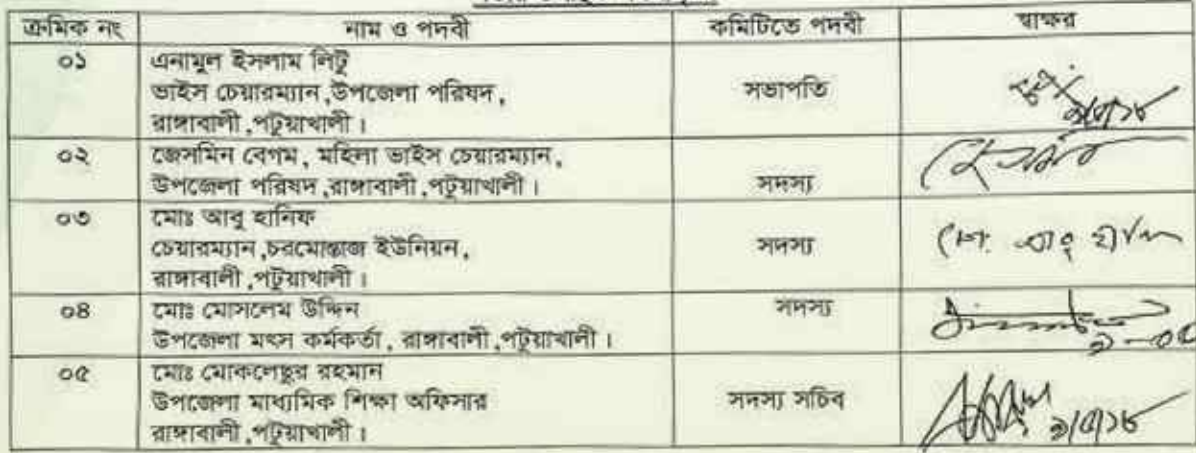 ক্রমিক নং নাম ও পদবী কমিটিতে পদবী স্বাক্ষর
০১ এনামুল ইসলাম লিটু
ভাইস চেয়ারম্যান,উপজেলা পরিষদ, সভাপতি
রাঙ্গাবালী,পটুয়াখালী।
০২ জেসমিন বেগম, মহিলা ভাইস চেয়ারম্যান,
উপজেলা পরিষদ,রাঙ্গাবালী,পটুয়াখালী। সদস্য
০৩ মোঃ আবু হানিফ
চেয়ারম্যান,চরমোন্তাজ ইউনিয়ন, সদস্য
রাঙ্গাবালী,পটুয়াখালী।
০৪ মোঃ মোসলেম উদ্দিন সদস্য
উপজেলা মৎস কর্মকর্তা, রাঙ্গাবালী,পটুয়াখালী।
০৫ মোঃ মোকলেছুর রহমান
উপজেলা মাধ্যমিক শিক্ষা অফিসার সদস্য সচিব
রাঙ্গাবালী,পটুয়াখালী।